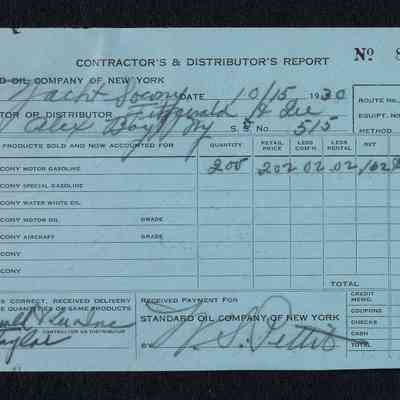 CONTRACTOR'S & DISTRIBUTOR'S REPORT
Nº 8
D OIL COMPANY OF NEW YORK
Yacht Socony DATE 10/15 1930
ROUTE NO.
TOR OR DISTRIBUTOR Fitzgerald & Lee
EQUIPT. NO.
Alex Bay NY S. S. No. 515
METHOD
PRODUCTS SOLD AND NOW ACCOUNTED FOR QUANTITY RETAIL PRICE LESS COM'N LESS RENTAL NET
CONY MOTOR GASOLINE 200 202 02 02 162
CONY SPECIAL GASOLINE
CONY WATER WHITE OIL
CONY MOTOR OIL GRADE
CONY AIRCRAFT GRADE
CONY
CONY
TOTAL
IS CORRECT, RECEIVED DELIVERY
E QUANTITIES OR SAME PRODUCTS
RECEIVED PAYMENT FOR
STANDARD OIL COMPANY OF NEW YORK
CREDIT MEMO.
COUPONS
CHECKS
CASH
CONTRACTOR OR DISTRIBUTOR
Taylor
BY S. Pettit
TOTAL